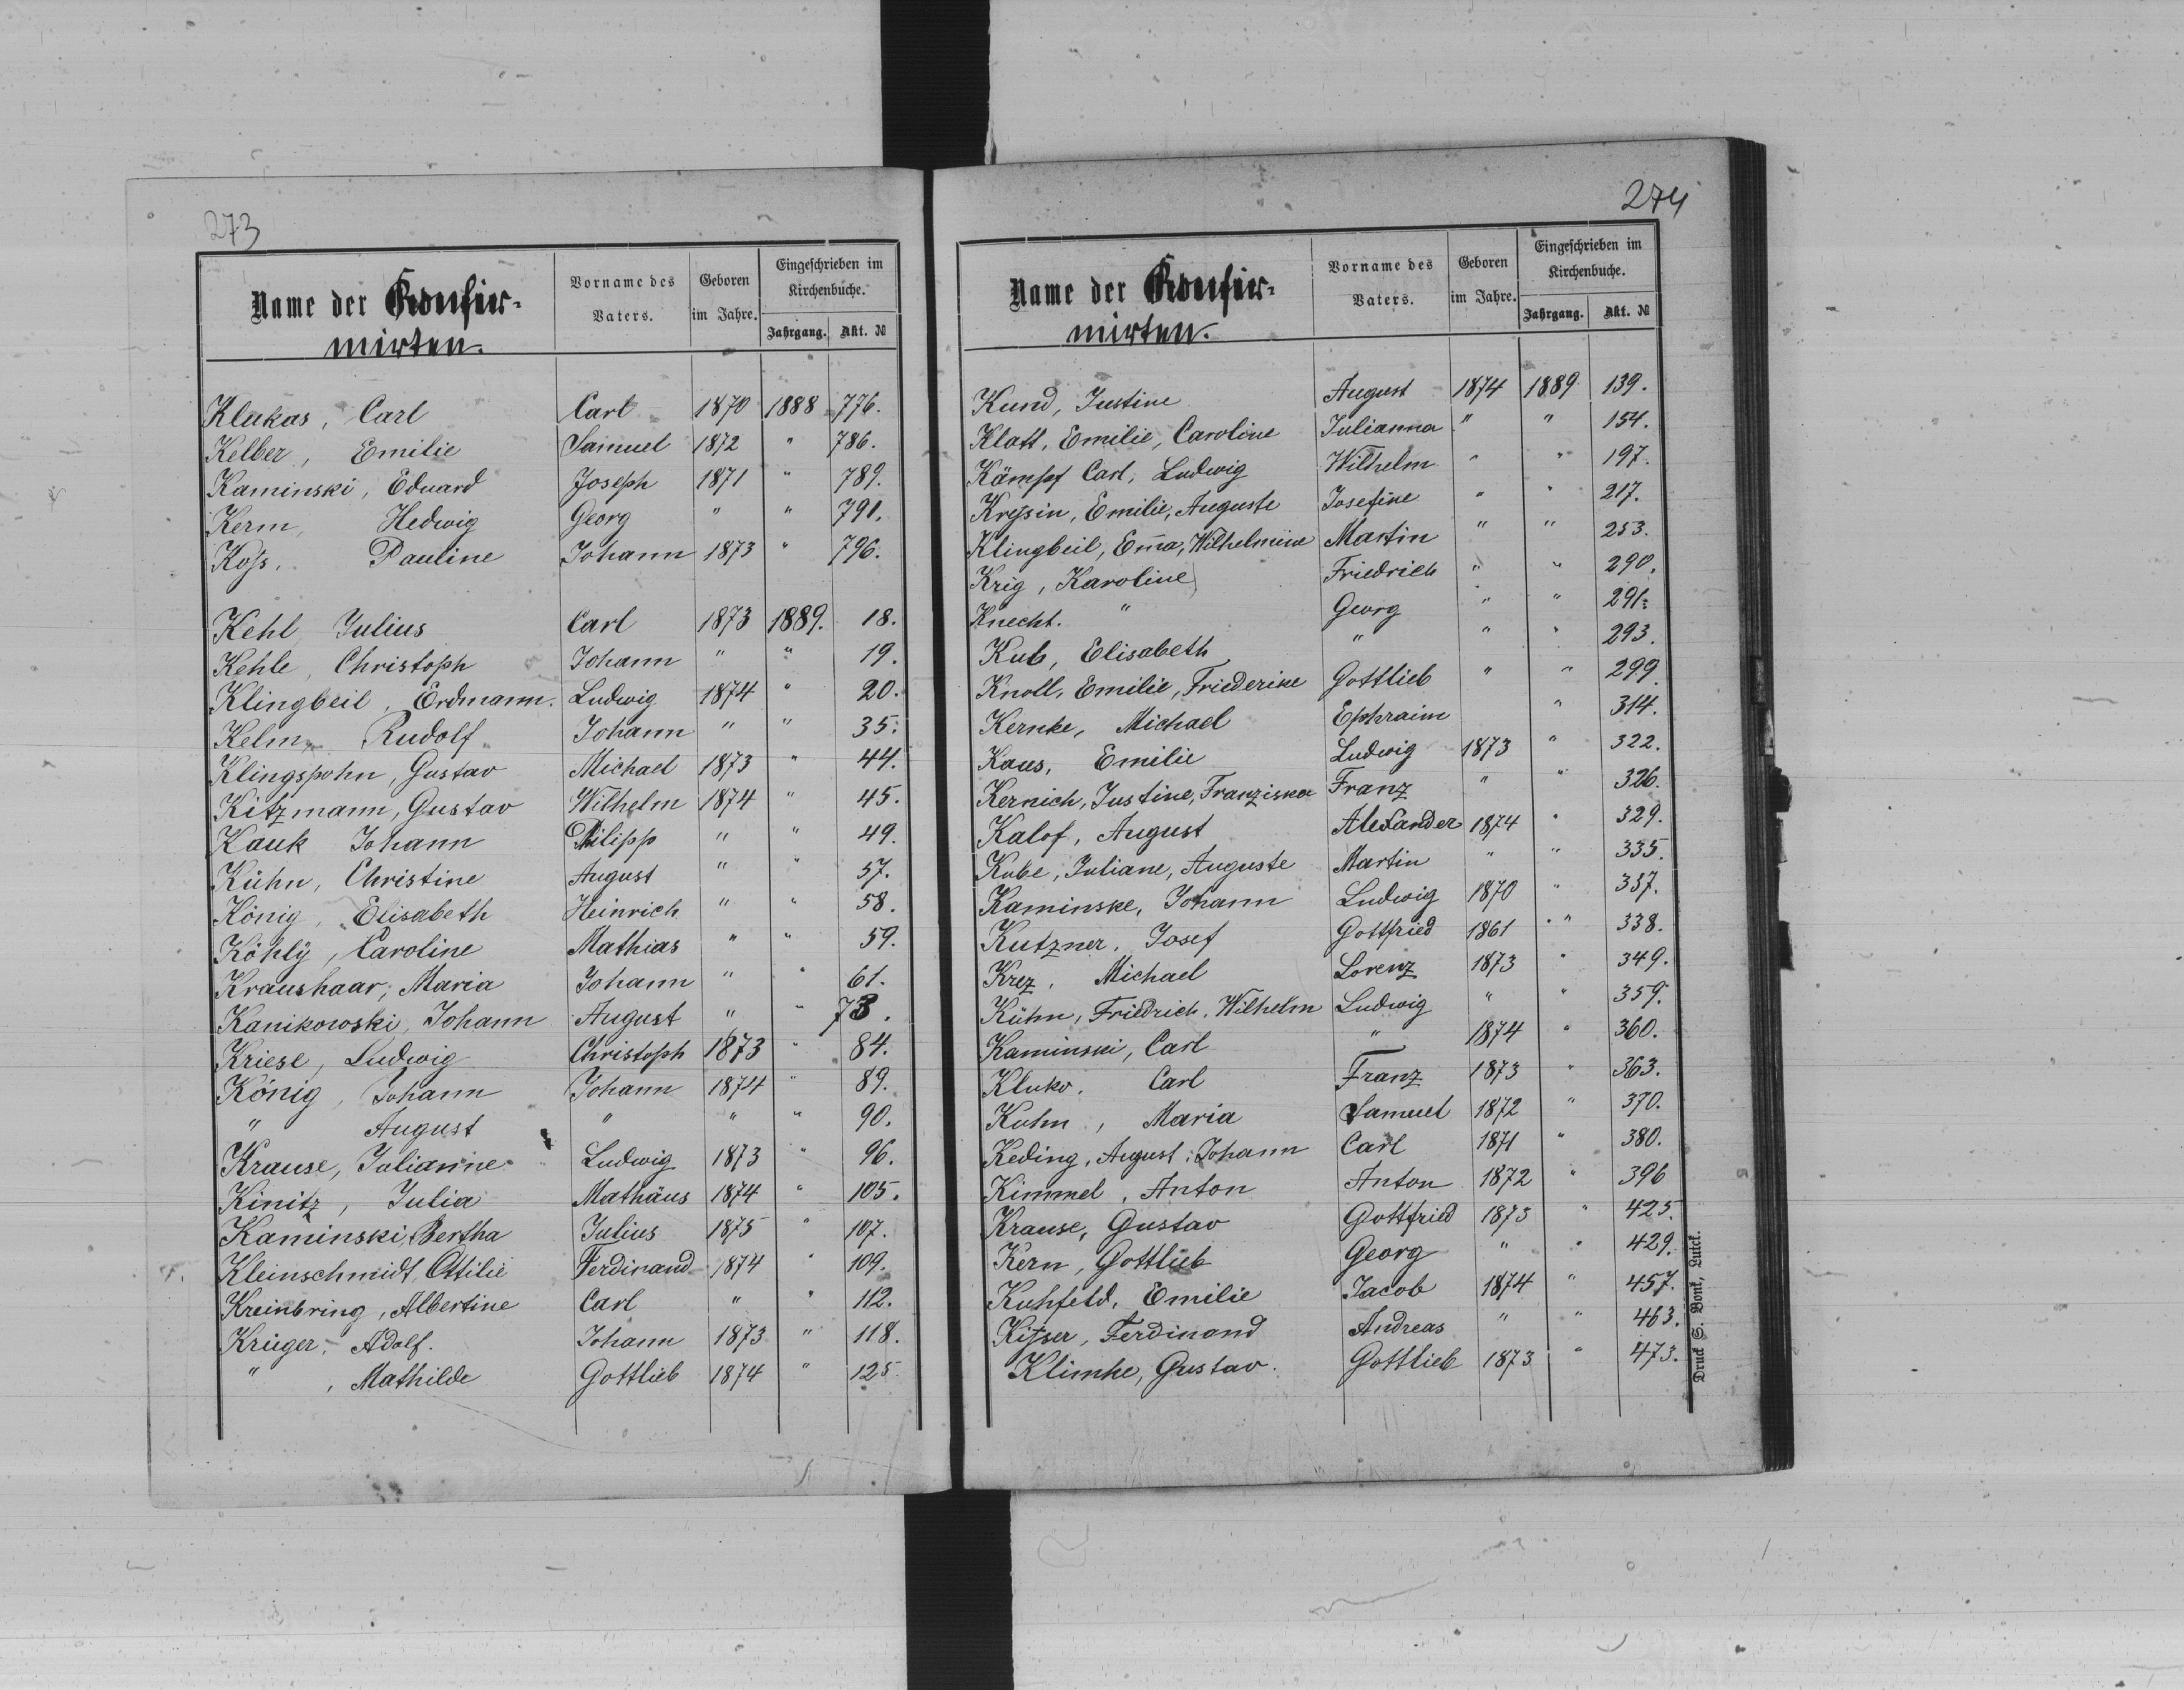 273
Name der Konfir-
mirten.
Vorname des
Vaters.
Geboren
im Jahre.
Eingeschrieben im
Kirchenbuche.
Jahrgang. Akt. №
Klukas, Carl Carl 1870 1888 776.
Kelber, Emilie Samuel 1872 " 786.
Kaminski, Eduard Joseph 1871 " 789.
Kerm, Hedwig Georg " " 791.
Koſs, Pauline Johann 1873 " 796.
Kehl Julius Carl 1873 1889. 18.
Kehle, Christoph Johann " " 19.
Klingbeil, Erdmann. Ludwig 1874 " 20.
Kelm, Rudolf Johann " " 35.
Klingspohn, Gustav Michael 1873 " 44.
Kitzmann, Gustav Wilhelm 1874 " 45.
Kauk Johann Philipp " " 49.
Kühn, Christine August " " 57.
König, Elisabeth Heinrich " " 58.
Köhly, Caroline Mathias " " 59.
Kraushaar, Maria Johann " " 61.
Kanikowski, Johann August " " 73.
Kriese, Ludwig Christoph 1873 " 84.
König, Johann Johann 1874 " 89.
" August " " " 90.
Krause, Julianne Ludwig 1873 " 96.
Kinitz, Julia Mathäus 1874 " 105.
Kaminski, Bertha Julius 1875 " 107.
Kleinschmidt, Ottilie Ferdinand 1874 " 109.
Kreinbring, Albertine Carl " " 112.
Krüger, Adolf. Johann 1873 " 118.
" , Mathilde Gottlieb 1874 " 125.
274
Name der Konfir-
mirten.
Vorname des
Vaters.
Geboren
im Jahre.
Eingeschrieben im
Kirchenbuche.
Jahrgang. Akt. №
Kund, Justine August 1874 1889 139.
Klatt, Emilie, Caroline Julianna " " 154.
Kämpf Carl, Ludwig Wilhelm " " 197.
Kryſin, Emilie, Auguste Josefine " " 217.
Klingbeil, Em̄a, Wilhelmine Martin " " 253.
Krig, Karoline Friedrich " " 290.
Knecht. " Georg " " 291.
Kub, Elisabeth " " " 293.
Knoll, Emilie, Friederike Gottlieb " " 299.
Kernke, Michael Ephraim " 314.
Kaus, Emilie Ludwig 1873 " 322.
Kernich, Justine, Franziska Franz " " 326.
Kalof, August Alexander 1874 " 329.
Kube, Juliane, Auguste Martin " " 335.
Kaminske, Johann Ludwig 1870 " 337.
Kutzner, Josef Gottfried 1861 " 338.
Krez, Michael Lorenz 1873 " 349.
Kühn, Friedrich, Wilhelm Ludwig " " 359.
Kaminski, Carl " 1874 " 360.
Kluko, Carl Franz 1873 " 363.
Kuhn, Maria Samuel 1872 " 370.
Keding, August, Johann Carl 1871 " 380.
Kimmel, Anton Anton 1872 " 396
Krause, Gustav Gottfried 1873 " 425.
Kern, Gottlieb Georg " " 429.
Kuhfeld, Emilie Jacob 1874 " 457.
Kiſser, Ferdinand Andreas " " 463.
Klimke, Gustav Gottlieb 1873 " 473.
Druck S. Bonk, Luzk.